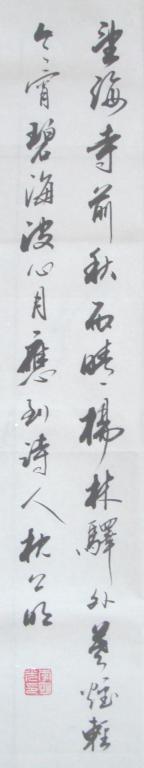 望海寺前秋雨晴楊林驛外暮煙輕
今宵碧海波心月應到詩人秋公明